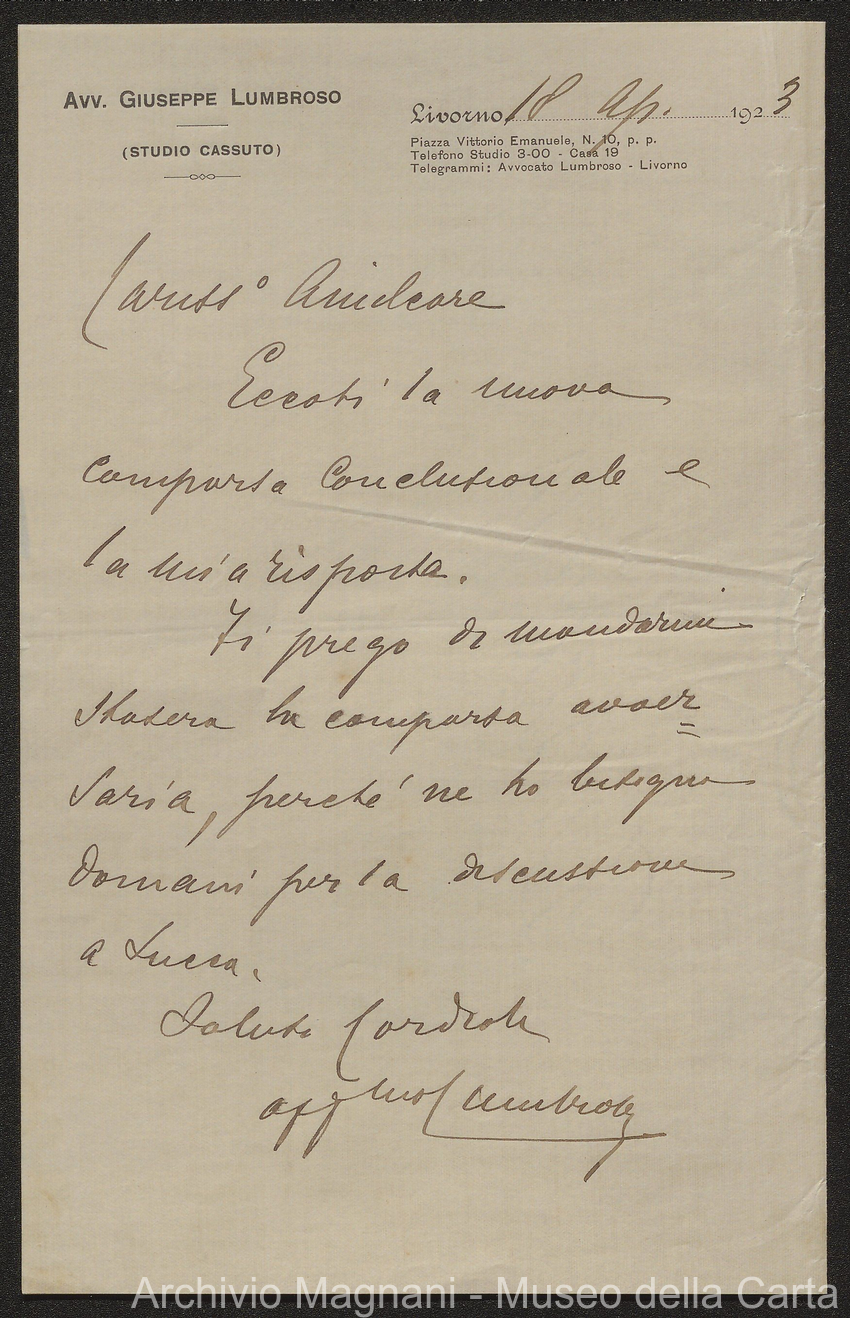 AVV. GIUSEPPE LUMBROSO
(STUDIO CASSUTO)
Livorno, 18 Ap. 1923
Piazza Vittorio Emanuele, N. 10, p. p.
Telefono Studio 3-00 - Casa 19
Telegrammi: Avvocato Lumbroso - Livorno
Cariss° Amilcare
Eccoti la nuova
Comparsa Conclusionale e
la mia risposta.
Ti prego di mandarmi
stasera la comparsa avver
saria, perché ne ho bisogno
domani per la discussione
a Lucca.
Saluti Cordiali
aff mo Lumbroso
Archivio Magnani - Museo della Carta